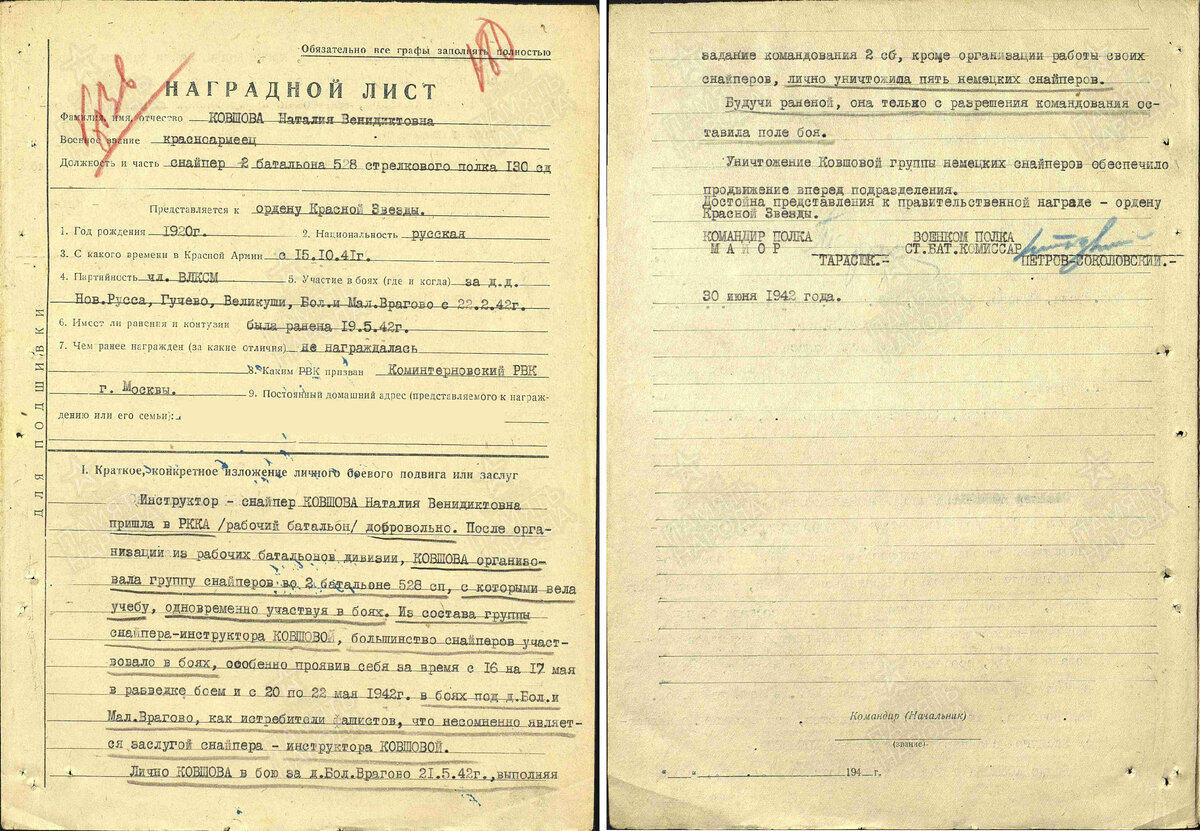 Обязательно все графы заполнять полностью
НАГРАДНОЙ ЛИСТ
Фамилия, имя, отчество КОВШОВА Наталия Венидиктовна
Военное звание красноармеец
Должность и часть снайпер 2 батальона 528 стрелкового полка 130 сд
Представляется к ордену Красной Звезды.
1. Год рождения 1920г. 2. Национальность русская
3. С какого времени в Красной Армии с 15.10.41г.
4. Партийность чл. ВЛКСМ 5. Участие в боях (где и когда) за д.д.
Нов.Русса, Гучево, Великуши, Бол.и Мал.Врагово с 22.2.42г.
6. Имеет ли ранения и контузии была ранена 19.5.42г.
7. Чем ранее награжден (за какие отличия) не награждалась
8. Каким РВК призван Коминтерновский РВК
г. Москвы. 9. Постоянный домашний адрес (представляемого к награж-
дению или его семьи):
ДЛЯ ПОДШИВКИ
I. Краткое, конкретное изложение личного боевого подвига или заслуг
Инструктор - снайпер КОВШОВА Наталия Венидиктовна
пришла в РККА /рабочий батальон/ добровольно. После орга-
низации из рабочих батальонов дивизии, КОВШОВА организо-
вала группу снайперов во 2 батальоне 528 сп, с которыми вела
учебу, одновременно участвуя в боях. Из состава группы
снайпера-инструктора КОВШОВОЙ, большинство снайперов участ-
вовало в боях, особенно проявив себя за время с 16 на 17 мая
в разведке боем и с 20 по 22 мая 1942г. в боях под д.Бол.и
Мал.Врагово, как истребители фашистов, что несомненно являет-
ся заслугой снайпера - инструктора КОВШОВОЙ.
Лично КОВШОВА в бою за д.Бол.Врагово 21.5.42г.,выполняя
задание командования 2 сб, кроме организации работы своих
снайперов, лично уничтожила пять немецких снайперов.
Будучи раненой, она только с разрешения командования ос-
тавила поле боя.
Уничтожение Ковшовой группы немецких снайперов обеспечило
продвижение вперед подразделения.
Достойна представления к правительственной награде - ордену
Красной Звезды.
КОМАНДИР ПОЛКА ВОЕНКОМ ПОЛКА
МАЙОР СТ.БАТ.КОМИССАР
ТАРАСЮК.- ПЕТРОВ-СОКОЛОВСКИЙ.-
30 июня 1942 года.
Командир (Начальник)
(звание)
" " 194 г.
ПАМЯТЬ НАРОДА